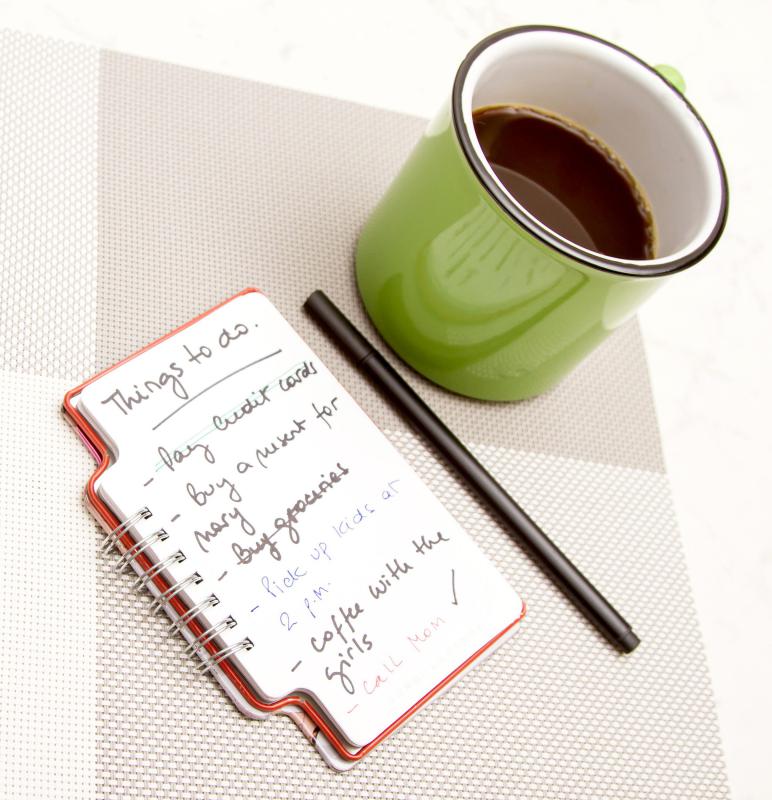 Things to do.
- Pay credit cards
- Buy a present for
Mary
- Buy groceries
- Pick up kids at
2 p.m.
- coffee with the
girls ✓
- call Mom